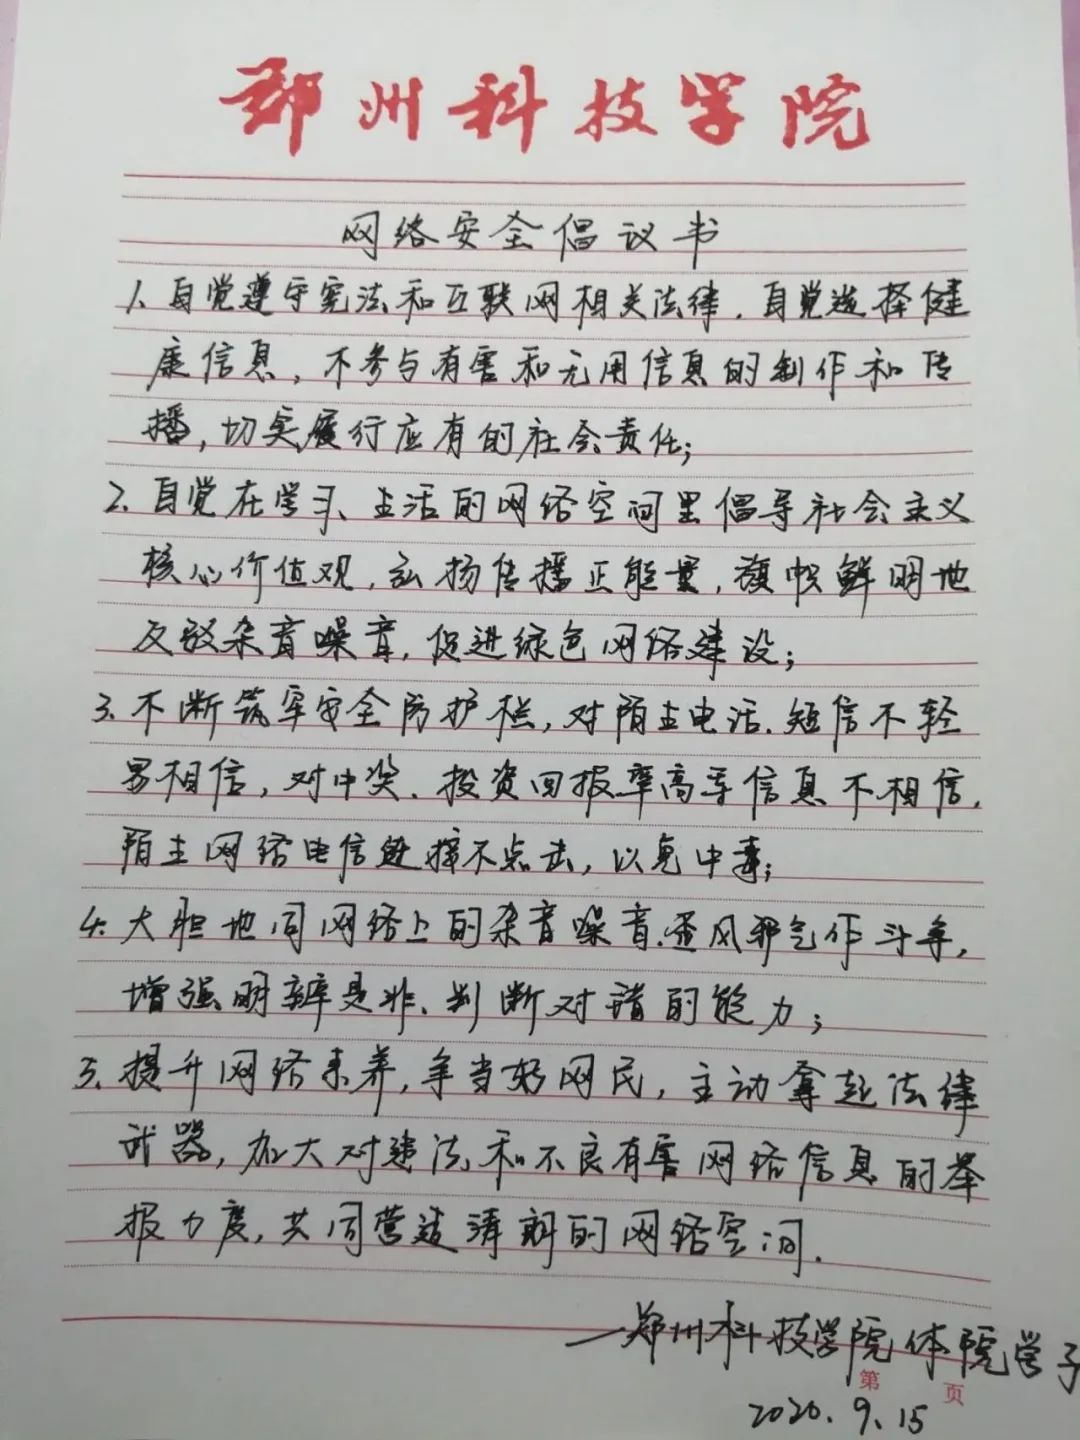 郑州科技学院
网络安全倡议书
1、自觉遵守宪法和互联网相关法律，自觉选择健
康信息，不参与有害和无用信息的制作和传
播，切实履行应有的社会责任；
2、自觉在学习、生活的网络空间里倡导社会主义
核心价值观，弘扬传播正能量，旗帜鲜明地
反驳杂音噪音，促进绿色网络建设；
3、不断筑牢安全防护栏，对陌生电话、短信不轻
易相信，对中奖、投资回报率高等信息不相信，
陌生网络电信链接不点击，以免中毒；
4、大胆地同网络上的杂音噪音、歪风邪气作斗争，
增强明辨是非、判断对错的能力；
5、提升网络素养，争当好网民，主动拿起法律
武器，加大对违法和不良有害网络信息的举
报力度，共同营造清朗的网络空间．
—郑州科技学院体院学子
第 页
2020.9.15